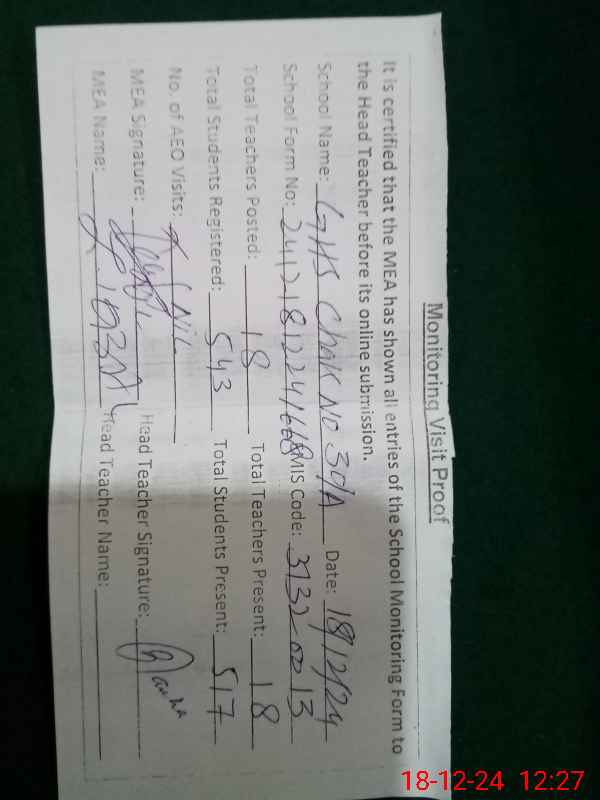 Monitoring Visit Proof
It is certified that the MEA has shown all entries of the School Monitoring Form to
the Head Teacher before its online submission.
School Name: GHS Chak NO 30/A Date: 18/12/24
School Form No: 24121812241668 EMIS Code: 31320013
Total Teachers Posted: 18 Total Teachers Present: 18
Total Students Registered: 543 Total Students Present: 517
No. of AEO Visits: NIL
MEA Signature: Head Teacher Signature:
MEA Name: Head Teacher Name:
18-12-24 12:27